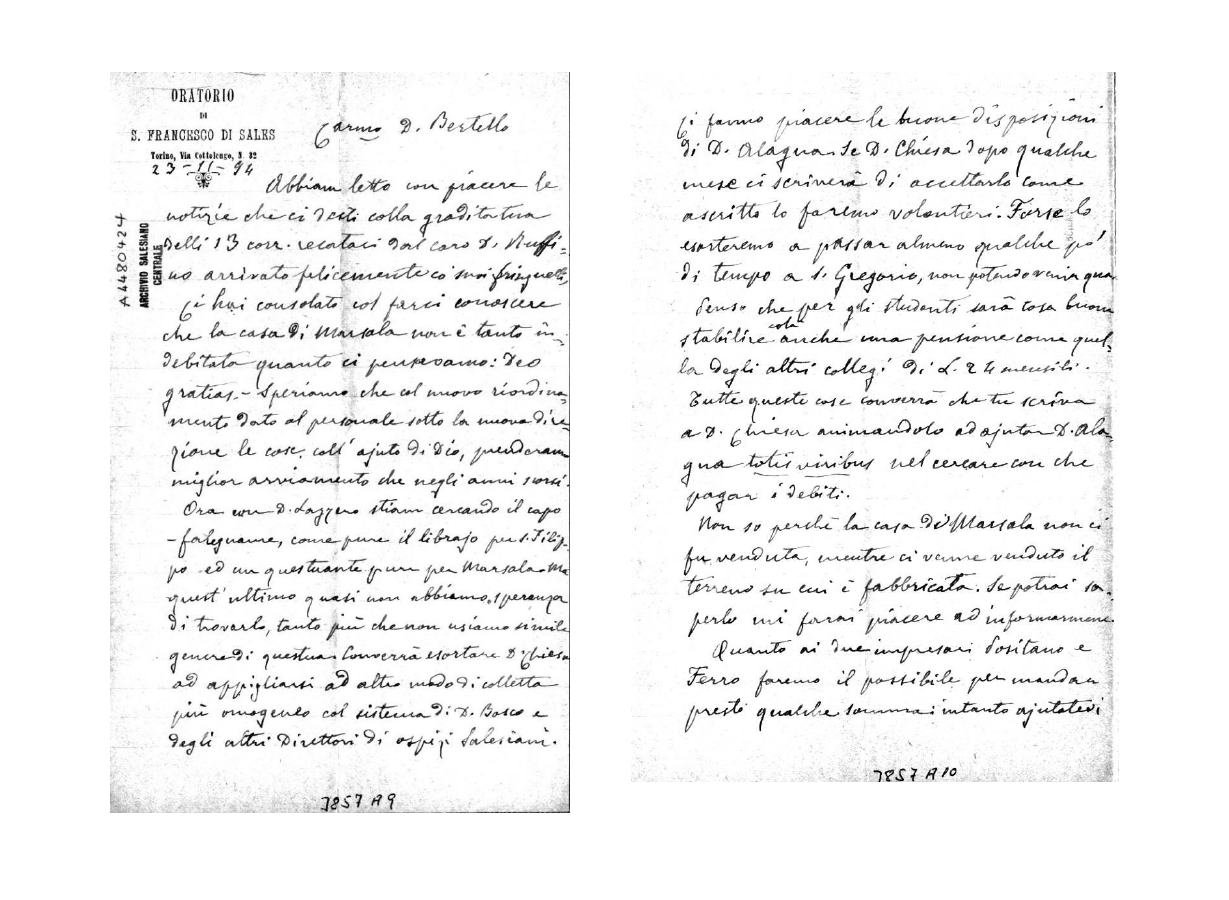 ORATORIO
DI
S. FRANCESCO DI SALES
Torino, Via Cottolengo, N. 32
23-11-94
Carmo D. Bertello
Abbiam letto con piacere le
notizie che ci desti colla gradita tua
delli 13 corr. recataci dal caro D. Ruffi-
no arrivato felicemente co' suoi
Ci hai consolato col farci conoscere
che la casa di Marsala non è tanto in-
debitata quanto ci pensavamo: Deo
gratias. - Speriamo che col nuovo riordina-
mento dato al personale sotto la nuova dire-
zione le cose, coll' ajuto di Dio, prenderan
miglior avviamento che negli anni scorsi.
Ora con D. Lazzero stiam cercando il capo
-falegname, come pure il librajo per S. Filip-
po ed un questuante pure per Marsala. Ma
quest' ultimo quasi non abbiamo speranza
di trovarlo, tanto più che non usiamo simile
genere di questua. Converrà esortare D. Chiesa
ad appigliarsi ad altro modo di colletta
più omogeneo col sistema di D. Bosco e
degli altri Direttori di ospizi Salesiani.
A4480424
ARCHIVIO SALESIANO
CENTRALE
7857 A9
Ci fanno piacere le buone disposizioni
di D. Alagna. Se D. Chiesa dopo qualche
mese ci scriverà di accettarlo come
ascritto lo faremo volontieri. Forse lo
esorteremo a passar almeno qualche pò
di tempo a S. Gregorio, non potendo venir qua.
Penso che per gli studenti sarà cosa buona
stabilire colà anche una pensione come quel-
la degli altri collegi di L. 24 mensili.
Tutte queste cose converrà che tu scriva
a D. Chiesa animandolo ad ajutar D. Ala-
gna totis viribus nel cercare con che
pagar i debiti.
Non so perchè la casa di Marsala non ci
fu venduta, mentre ci venne venduto il
terreno su cui è fabbricata. Se potrai sa-
perlo mi farai piacere ad informarmene.
Quanto ai due impresari Positano e
Ferro faremo il possibile per mandar
presto qualche somma: intanto ajutatevi
7857 A10